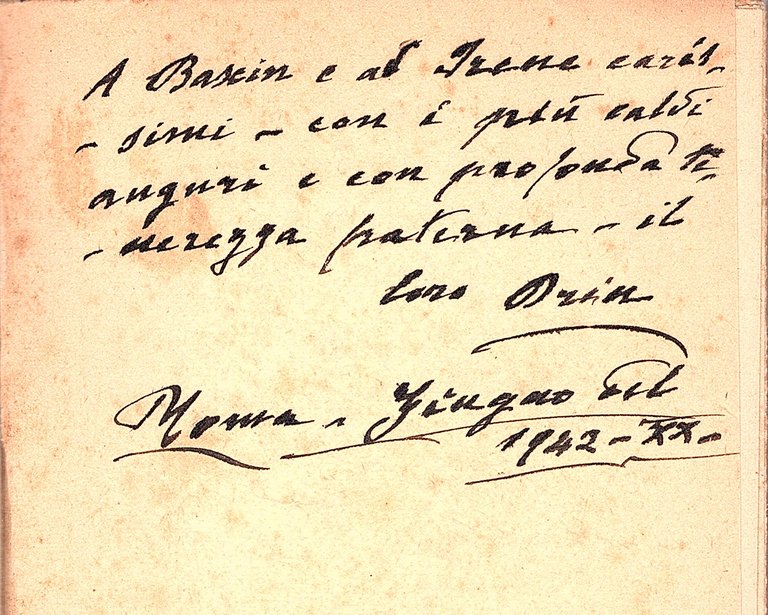 A Baxin e ad Irene caris-
- simi - con i più caldi
auguri e con profonda te-
- nerezza fraterna - il
loro Drin
Roma - Giugno del
1942 - XX -